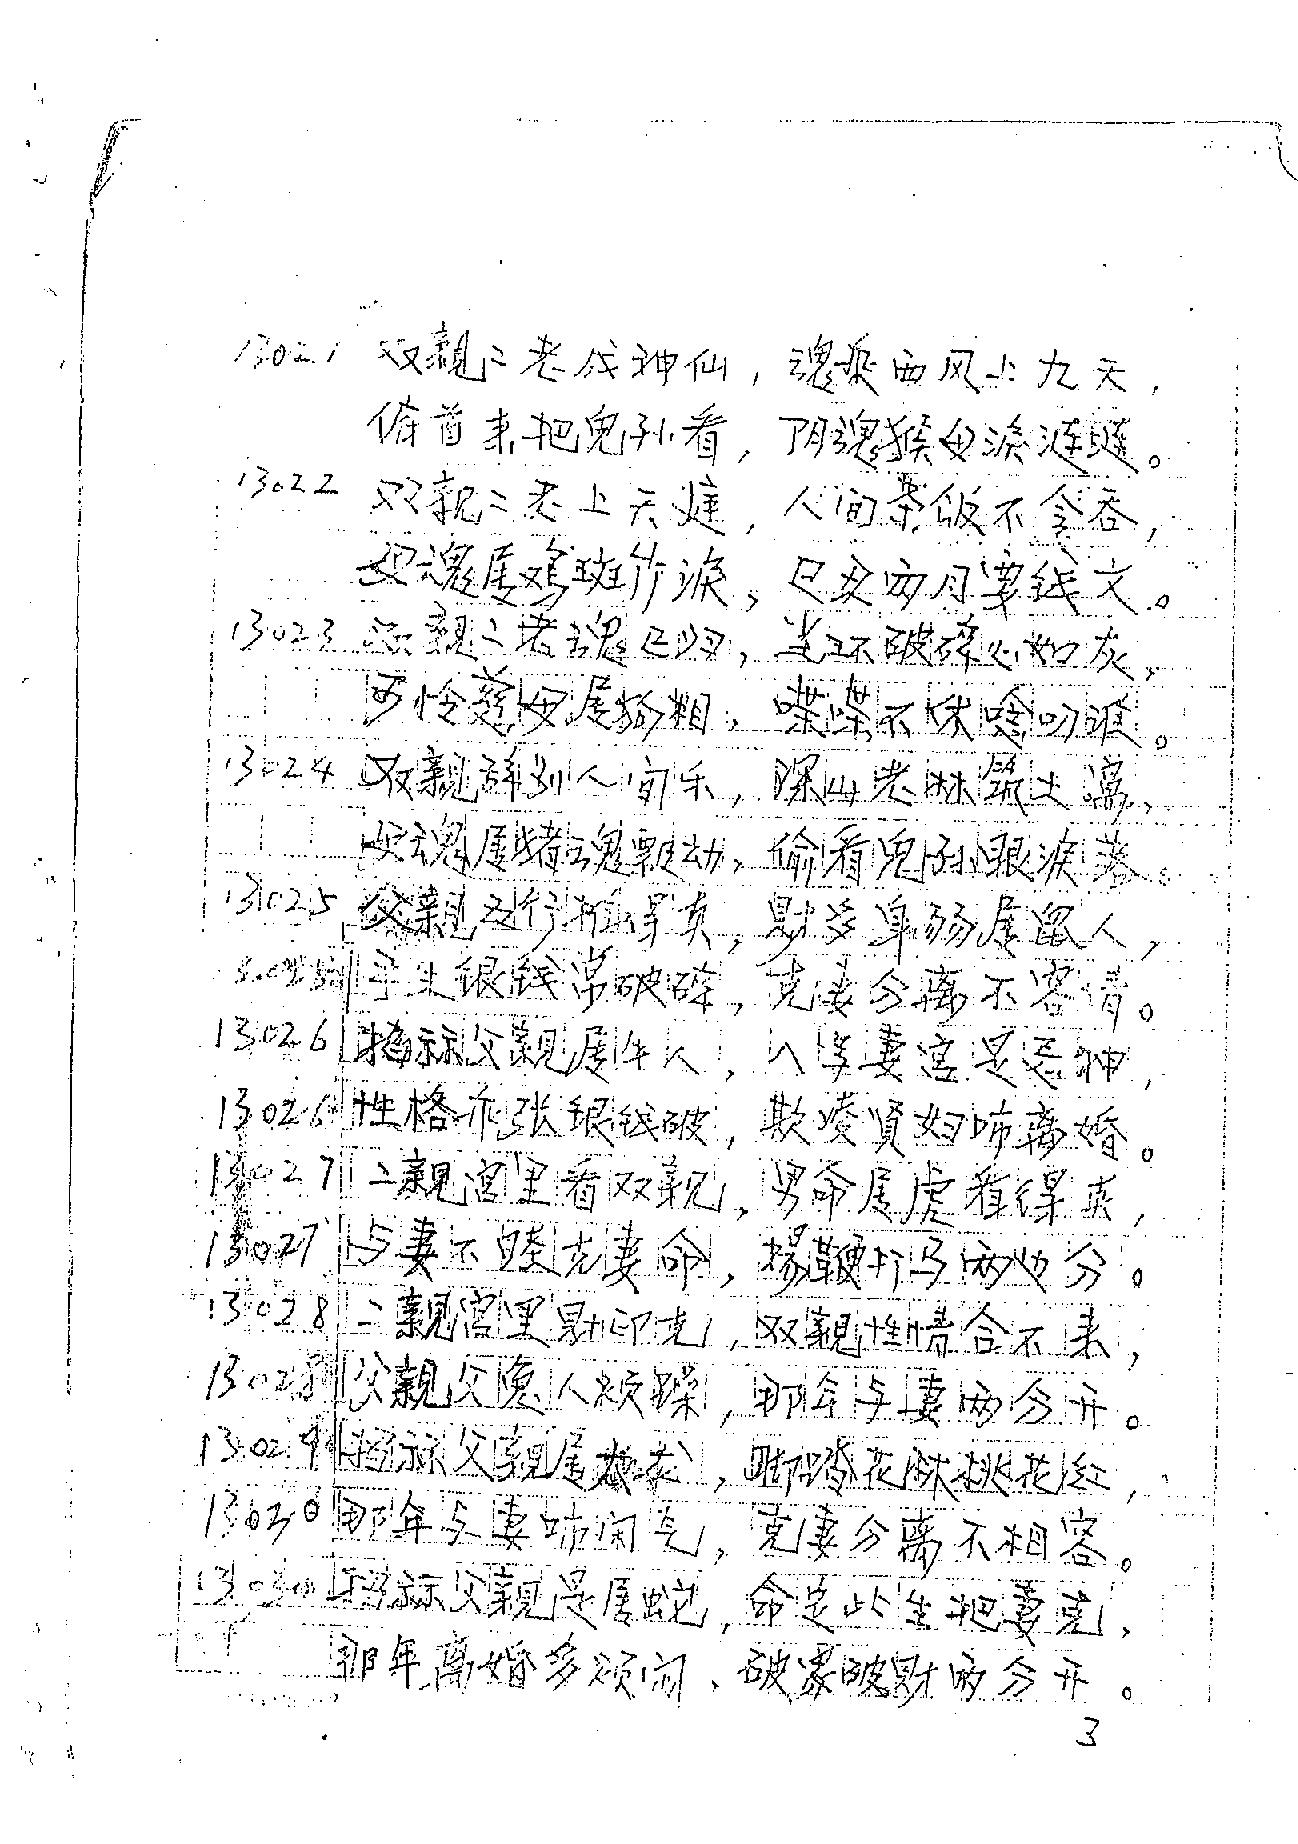 13021 双親二老成神仙，魂乘西风上九天，
俯首来把鬼孙看，阴魂猴母淚涟涟。
13022 双親二老上天庭，人间茶饭不会吞，
母魂属鸡斑竹淚，巳丑两月要钱文。
13023 双親二老魂已归，坐不破碎心如灰，
可怜慈母属狗相，喋喋不休唸叨谁。
13024 双親辞别人间乐，深山老林筑土窝，
母魂属猪魂飄动，偷看鬼孙眼淚落。
13025 父親五行推得真，財多身弱属鼠人，
手头银钱常破碎，克妻分离不客情。
13026 椿萱父親属牛人，入享妻宫是忌神，
13026 性格乖张银钱破，欺凌贤妇啼離婚。
13027 二親宫里看双親，男命属虎看得真，
13027 与妻不睦克妻命，揚鞭打马两边分。
13028 二親宫里財印克，双親性情合不来，
13028 父親父兔人烦躁，那年与妻两分开。
13029 父親属，脚踏花林桃花红，
13030 那年与妻啼闲气，克妻分离不相容。
13030 父親是属蛇，命定此生把妻克，
那年离婚多烦闷、破家破財两分开。
3